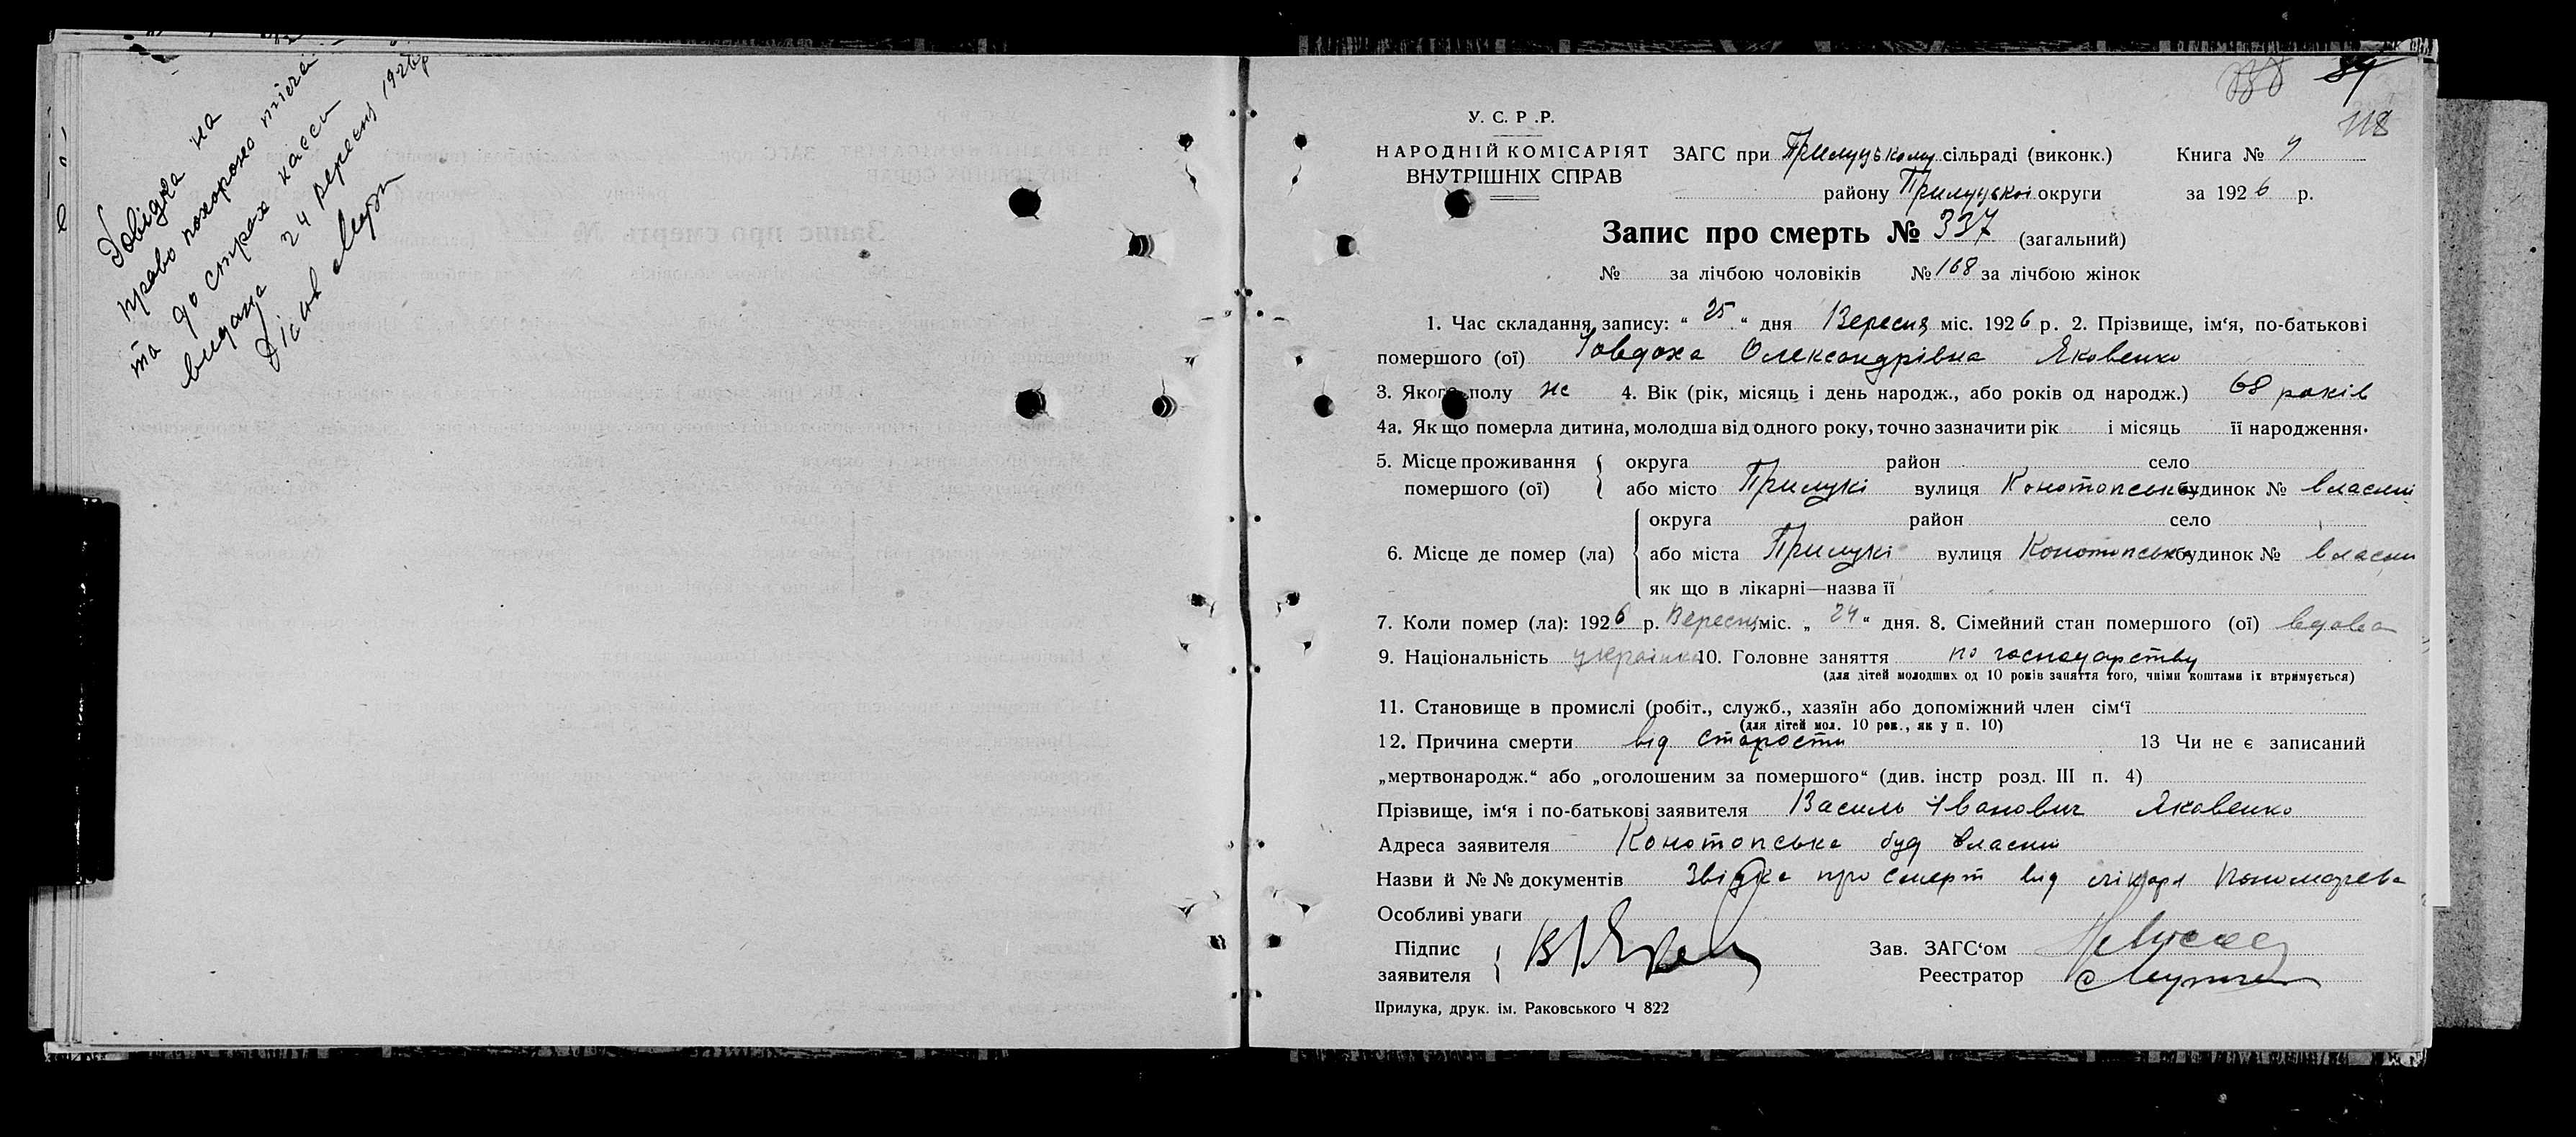 Довідка на
право похорона тіла
та до страх касси
видана 24 вересня 1926 р
Діловод
118
У. С. Р. Р.
НАРОДНІЙ КОМІСАРІЯТ
ВНУТРІШНІХ СПРАВ
ЗАГС при Прилуцькому сільраді (виконк.)
району Прилуцької округи
Книга №
за 1926 р.
Запис про смерть № 337 (загальний)
№ за лічбою чоловіків № 168 за лічбою жінок
1. Час складання запису: “ 25 “ дня Вересня міс. 1926 р. 2. Прізвище, ім‘я, по-батькові
помершого (ої) Явдоха Олександрівна Яковенко
3. Якого полу ж 4. Вік (рік, місяць і день народж., або років од народж.) 68 років
4а. Як що померла дитина, молодша від одного року, точно зазначити рік і місяць її народження.
5. Місце проживання помершого (ої) { округа район село
або місто Прилукі вулиця Конотопська будинок № власний
6. Місце де помер (ла) { округа район село
або міста Прилукі вулиця Конотопська будинок № власний
як що в лікарні—назва її
7. Коли помер (ла): 1926 р. Вересня міс. „ 24 “ дня. 8. Сімейний стан помершого (ої) вдова
9. Національність українка 10. Головне заняття по господарству
(для дітей молодших од 10 років заняття того, чиїми коштами їх втримується)
11. Становище в промислі (робіт., служб., хазяїн або допоміжний член сім‘ї
(для дітей мол. 10 рок., як у п. 10)
12. Причина смерти від старости 13 Чи не є записаний
„мертвонародж.“ або „оголошеним за помершого“ (див. інстр розд. III п. 4)
Прізвище, ім‘я і по-батькові заявителя Василь Іванович Яковенко
Адреса заявителя Конотопська буд власний
Назви й № № документів Звідка про смерт від лікаря Пономарева
Особливі уваги
Підпис
заявителя
Зав. ЗАГС‘ом
Реестратор
Прилука, друк. ім. Раковського Ч 822